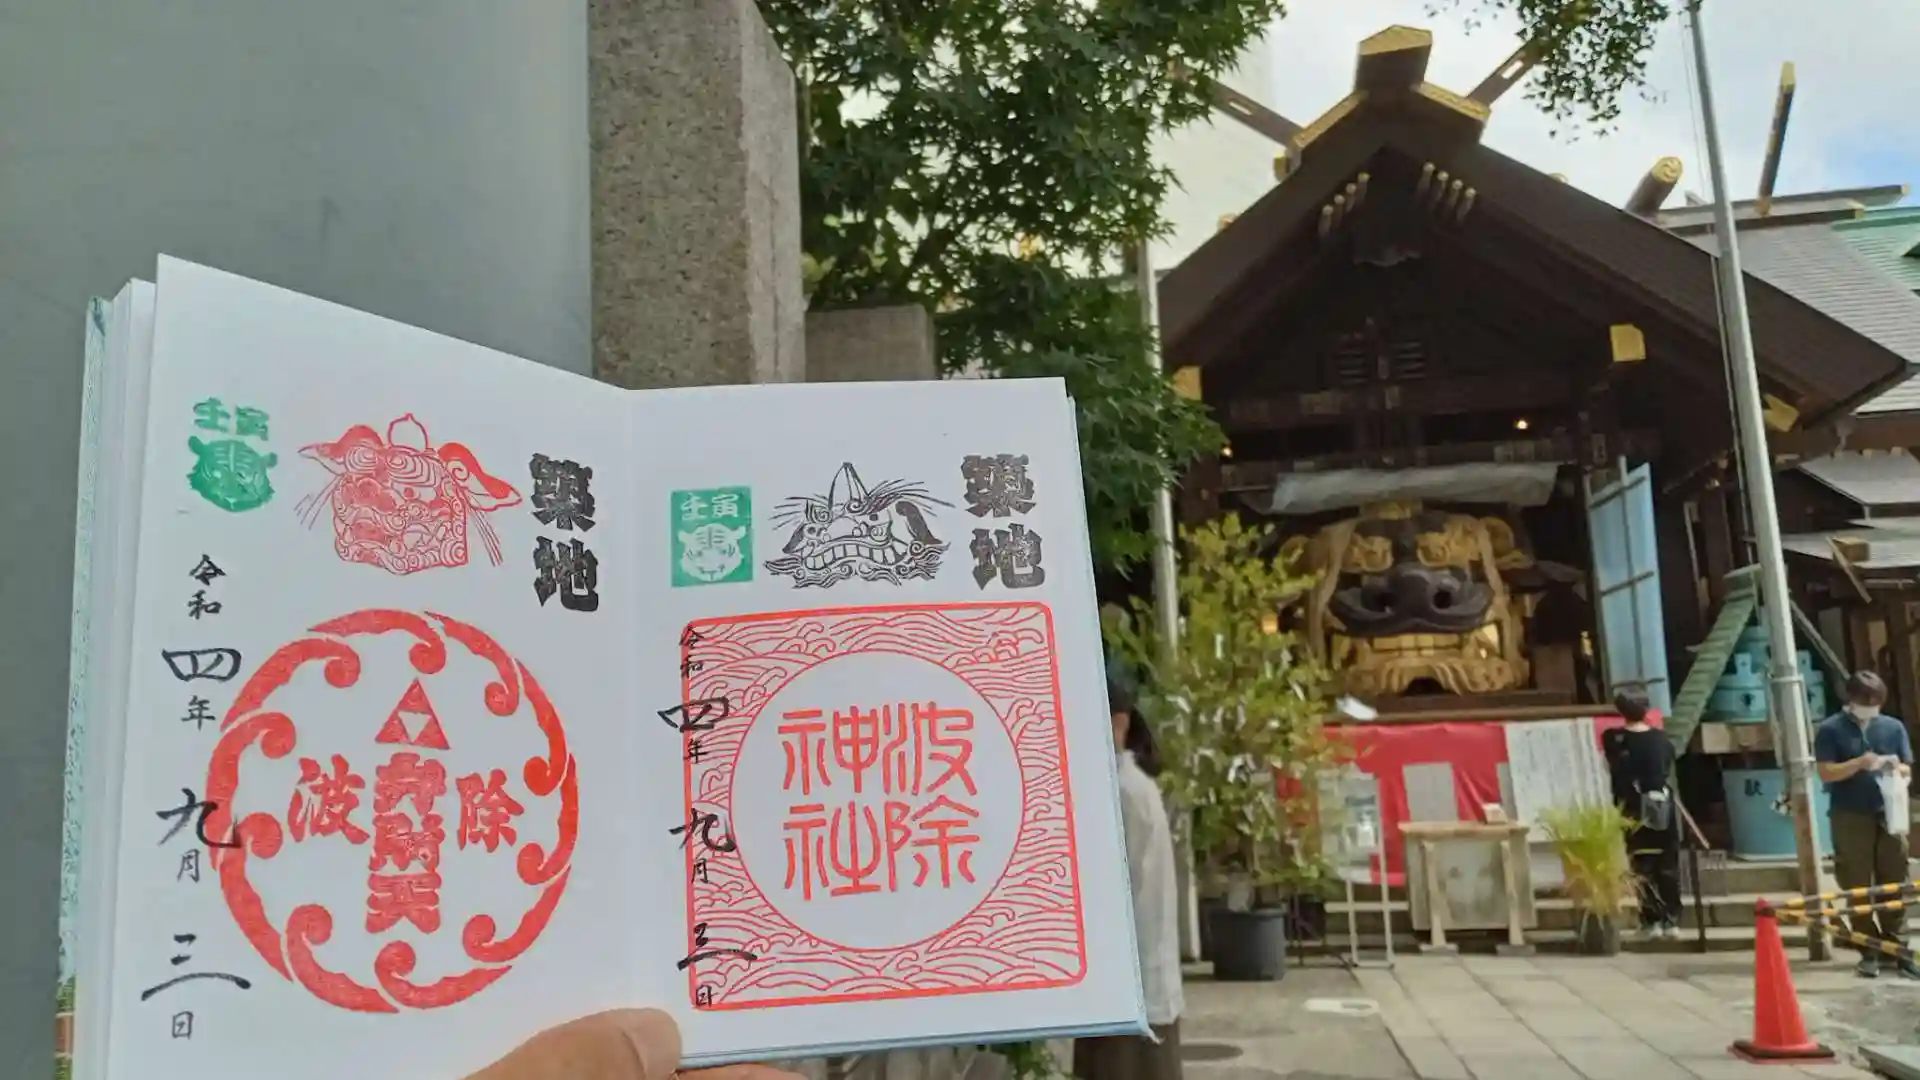 壬寅
築地
令和四年九月三日
波除
弁財天
壬寅
築地
令和四年九月三日
波除
神社